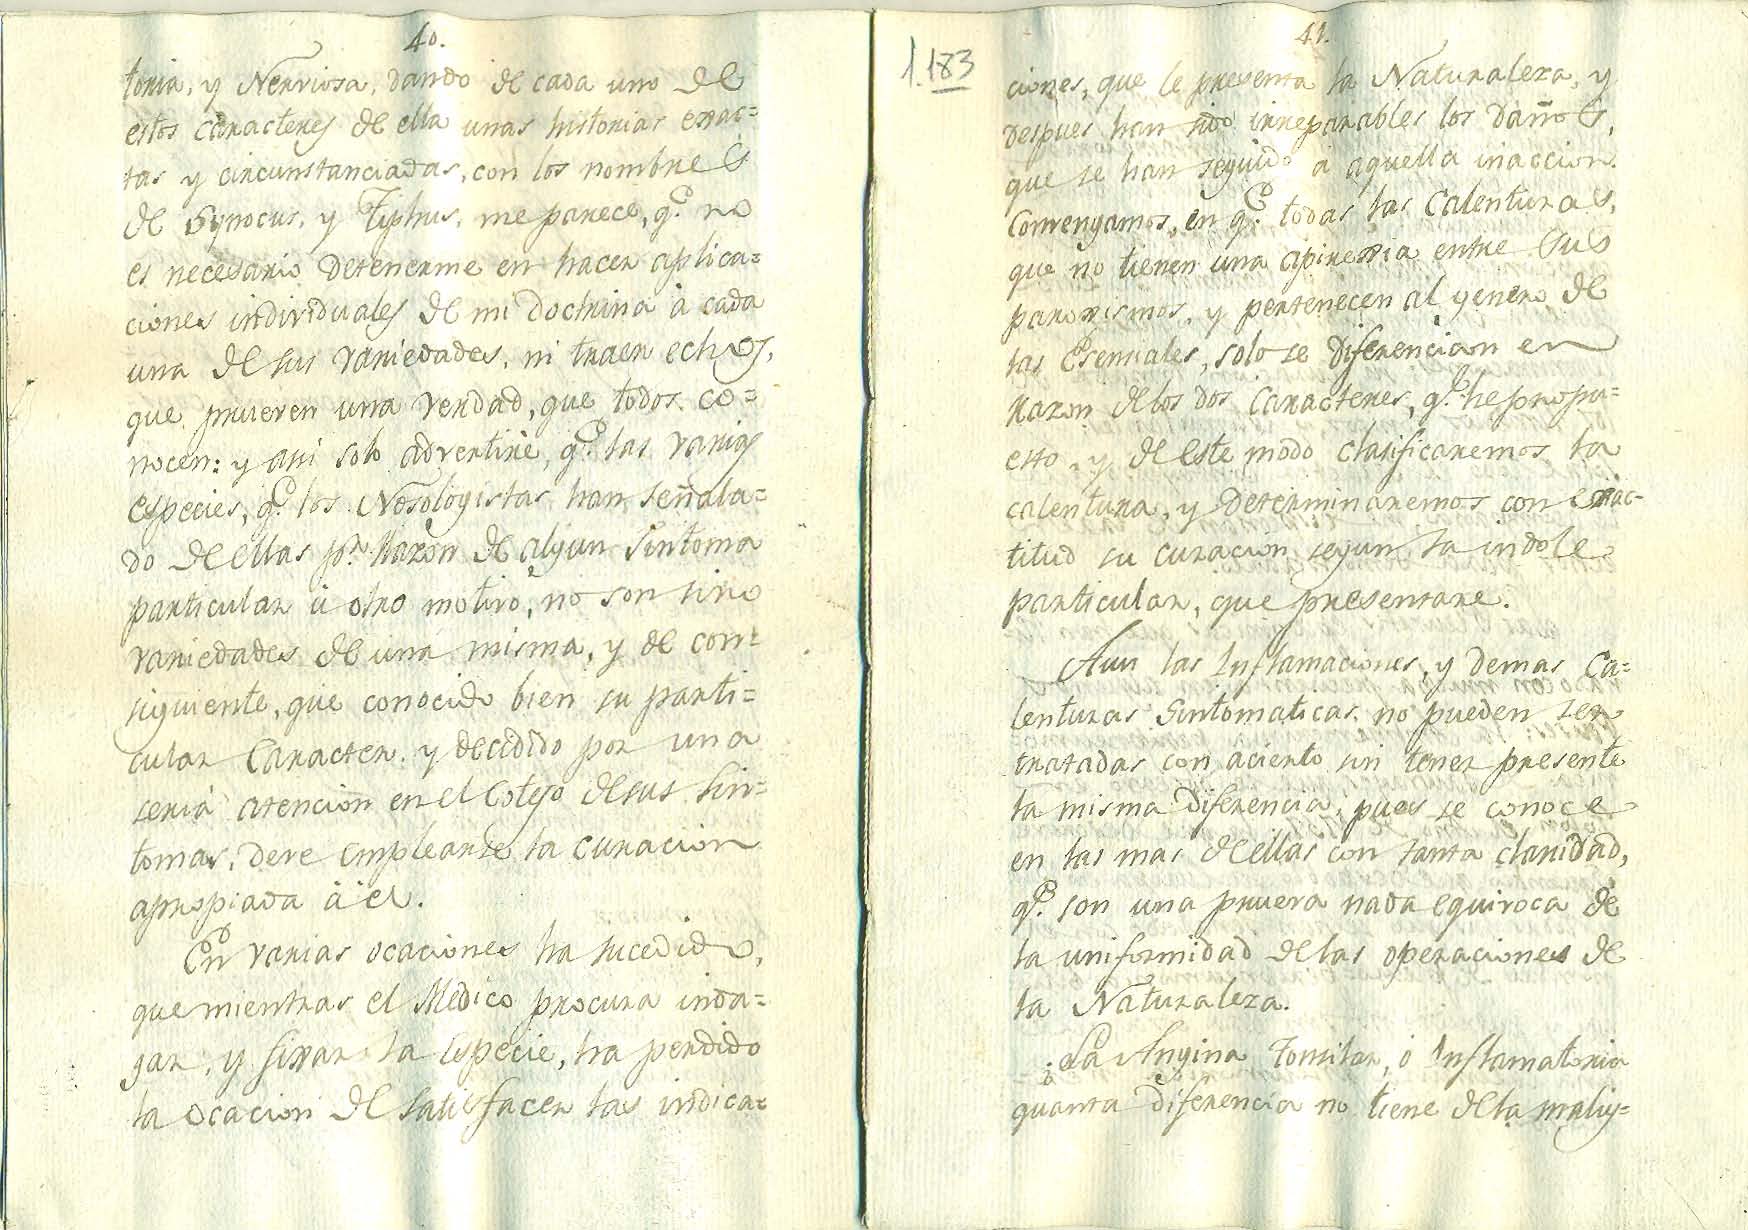 40.
toria, y Nerviosa, dando de cada uno de
estos caracteres de ella unas historias exac=
tas y circunstanciadas, con los nombres
de Synocus, y Tiphus, me parece, q.e no
es necesario detenerme en hacer aplica=
ciones individuales de mi doctrina à cada
una de sus variedades, ni traer echos,
que prueven una verdad, que todos co=
nocen: y asi solo advertirè, q.e las varias
especies, q.e los Nosologistas han señala=
do de ellas p.r Razon de algun Sintoma
particular ù otro motivo, no son sino
variedades de una misma, y de con=
siguiente, que conocido bien su parti=
cular Caracter, y decidido por una
seria atencion en el Cotejo de sus Sin=
tomas, deve emplearse la curacion
apropiada à èl.
En varias ocaciones ha sucedido,
que mientras el Medico procura inda=
gar, y fixar la Especie, ha perdido
la ocacion de satisfacer las indica=
1.183
41.
ciones, que le presenta la Naturaleza, y
despues han sido irreparables los daños,
que se han seguido à aquella inaccion.
Convengamos, en q.e todas las Calenturas,
que no tienen una apirexia entre sus
paroxismos, y pertenecen al genero de
las Esenciales, solo se diferencian en
Razon de los dos Caracteres, q.e he propu=
esto, y de este modo clasificaremos la
calentura, y determinaremos con exac=
titud su curacion segun la indole
particular, que presentare.
Aun las Inflamaciones, y demas Ca=
lenturas Sintomaticas no pueden ser
tratadas con acierto sin tener presente
la misma diferencia, pues se conoce
en las mas de ellas con tanta claridad,
q.e son una prueva nada equivoca de
la uniformidad de las operaciones de
la Naturaleza.
¿La Angina Tonsilar, ò Inflamatoria
quanta diferencia no tiene de la malig=